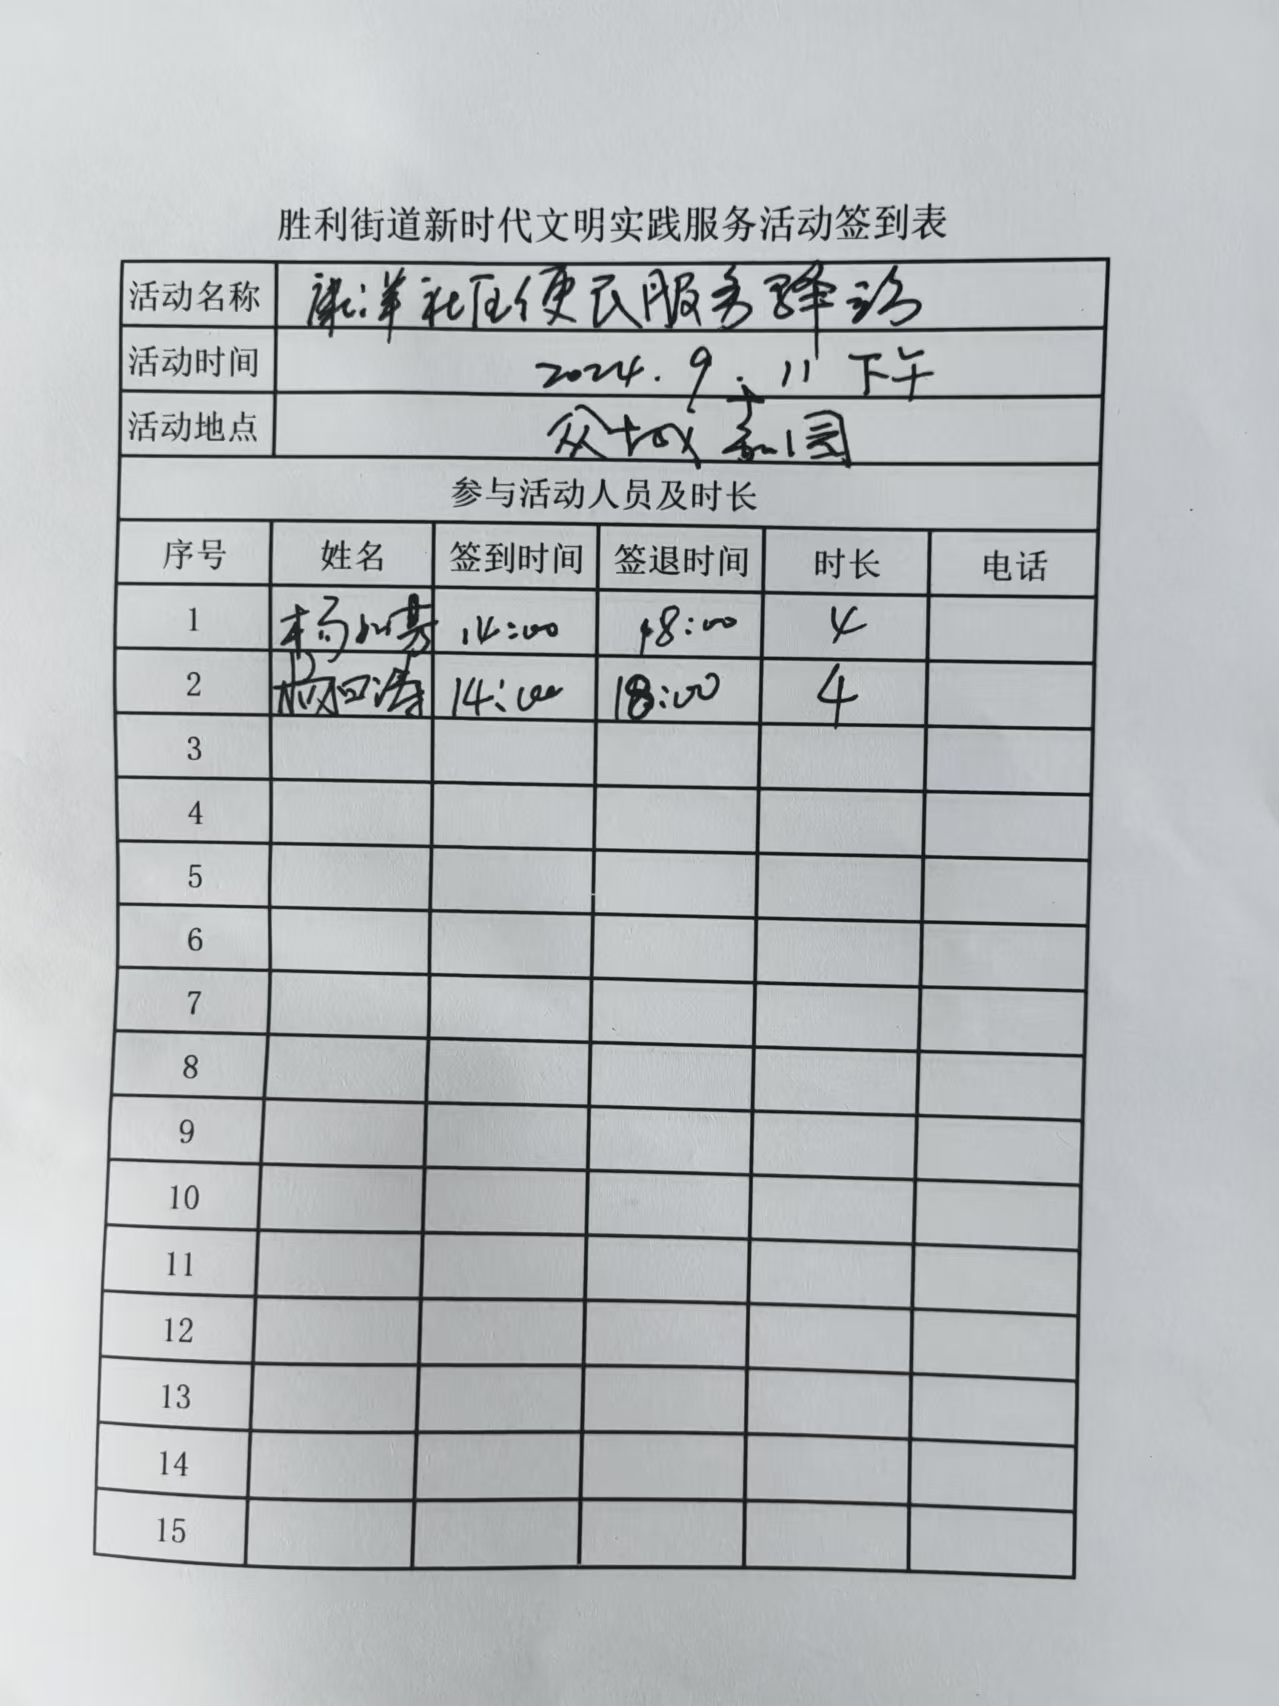 胜利街道新时代文明实践服务活动签到表
活动名称 康洋社区便民服务驿站
活动时间 2024.9.11 下午
活动地点 众城嘉园
参与活动人员及时长
序号 姓名 签到时间 签退时间 时长 电话
1 杨 14:00 18:00 4
2 14:00 18:00 4
3
4
5
6
7
8
9
10
11
12
13
14
15